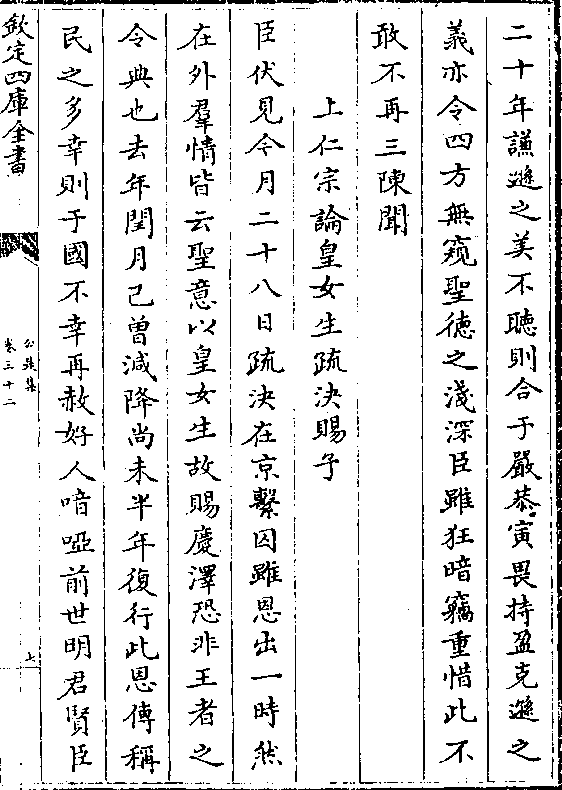 二十年謙遜之美不聽則合于嚴恭寅畏持盈克遜之
義亦令四方無窺聖徳之淺深臣雖狂暗竊重惜此不
敢不再三陳聞
上仁宗論皇女生疏決賜予
臣伏見今月二十八日疏決在京繫囚雖恩出一時然
在外羣情皆云聖意以皇女生故賜慶澤恐非王者之
令典也去年閏月已曽減降尚未半年復行此恩傳稱
民之多幸則于國不幸再赦好人喑啞前世明君賢臣
欽定四庫全書
公是集
卷三十二